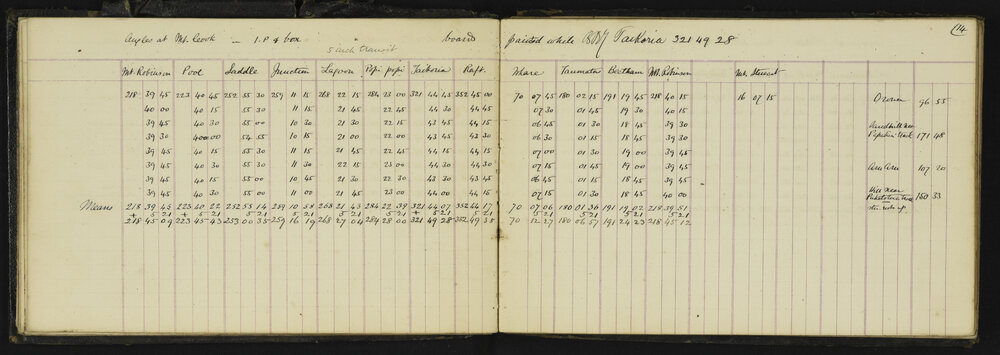 (14
Angles at Mt. Cook — I.P & box " board painted white Taikoria 321 49 28
5 inch transit
Mt Robinson Pool Saddle Junction Lagoon Pipi pipi Taikoria Raft. Whare Taumata Beetham Mt. Robinson Mt. Stewart
218 39 45 223 40 45 252 55 30 259 11 15 268 22 15 284 23 00 321 44 45 352 45 00 70 07 45 180 02 15 191 19 45 218 40 15 16 07 15 96 55
40 00 40 15 55 30 11 15 21 45 22 45 44 30 44 45 07 30 01 45 19 30 40 15
39 45 40 15 55 00 10 30 21 30 22 15 43 45 44 15 06 45 01 30 18 45 39 30
39 30 40 00 54 55 10 15 21 00 22 00 43 45 43 30 06 30 01 15 18 45 39 30 171 48
39 45 40 15 55 30 11 15 21 45 22 45 44 15 44 15 07 00 01 30 19 00 39 45
39 45 40 15 55 30 11 30 22 15 23 00 44 30 44 30 07 15 01 45 19 00 39 45 107 20
39 45 40 15 55 00 10 45 21 30 22 30 43 45 44 30 06 45 01 15 18 45 39 45
39 45 40 30 55 00 11 00 21 45 23 00 44 00 44 15 07 15 01 30 18 45 40 00 160 33
Means 218 39 45 223 40 22 252 55 14 259 10 58 268 21 43 284 22 39 321 44 07 352 44 17 70 07 06 180 01 36 191 19 02 218 39 51
+ 5 21 + 5 21 5 21 5 21 5 21 5 21 + 5 21 5 21 5 21 5 21 5 21 5 21
218 45 09 223 45 43 253 00 35 259 16 19 268 27 04 284 28 00 321 49 28 352 49 38 70 12 27 180 06 57 191 24 23 218 45 12